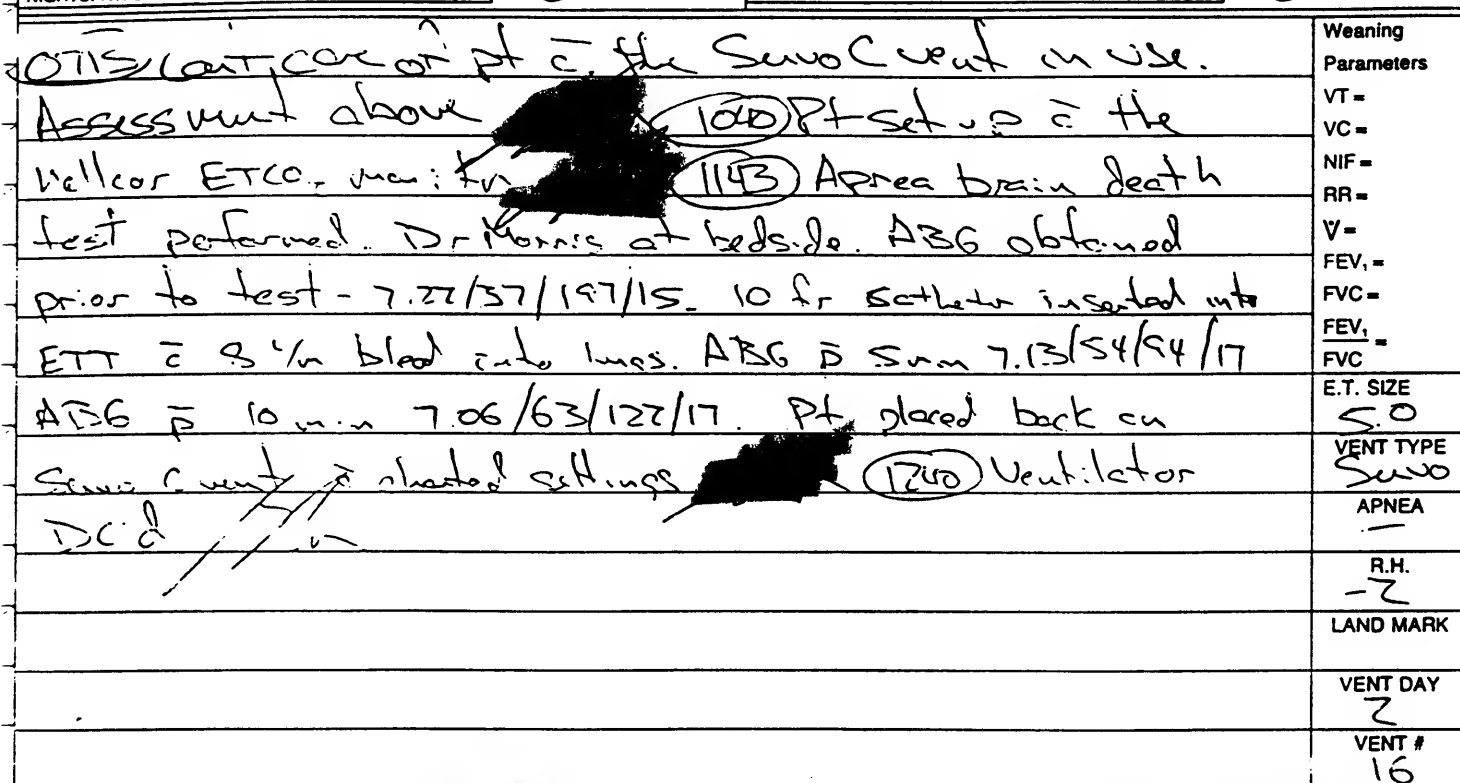 0715 cont, care of pt c̄ the Servo C vent in use.
Assessment above 1040 Pt set up c̄ the
Nellcor ETCO₂ monitor 1143 Apnea brain death
test performed. Dr Morris at bedside. ABG obtained
prior to test - 7.27/37/197/15. 10 fr catheter inserted into
ETT c̄ 8 l/m bleed into lungs. ABG p̄ 5 min 7.13/54/94/17
ABG p̄ 10 min 7.06/63/122/17. Pt placed back on
Servo C vent c̄ charted settings 1240 Ventilator
DC'd
Weaning
Parameters
VT =
VC =
NIF =
RR =
V̇ =
FEV₁ =
FVC =
FEV₁ =
FVC
E.T. SIZE
5.0
VENT TYPE
Servo
APNEA
—
R.H.
-2
LAND MARK
VENT DAY
2
VENT #
16